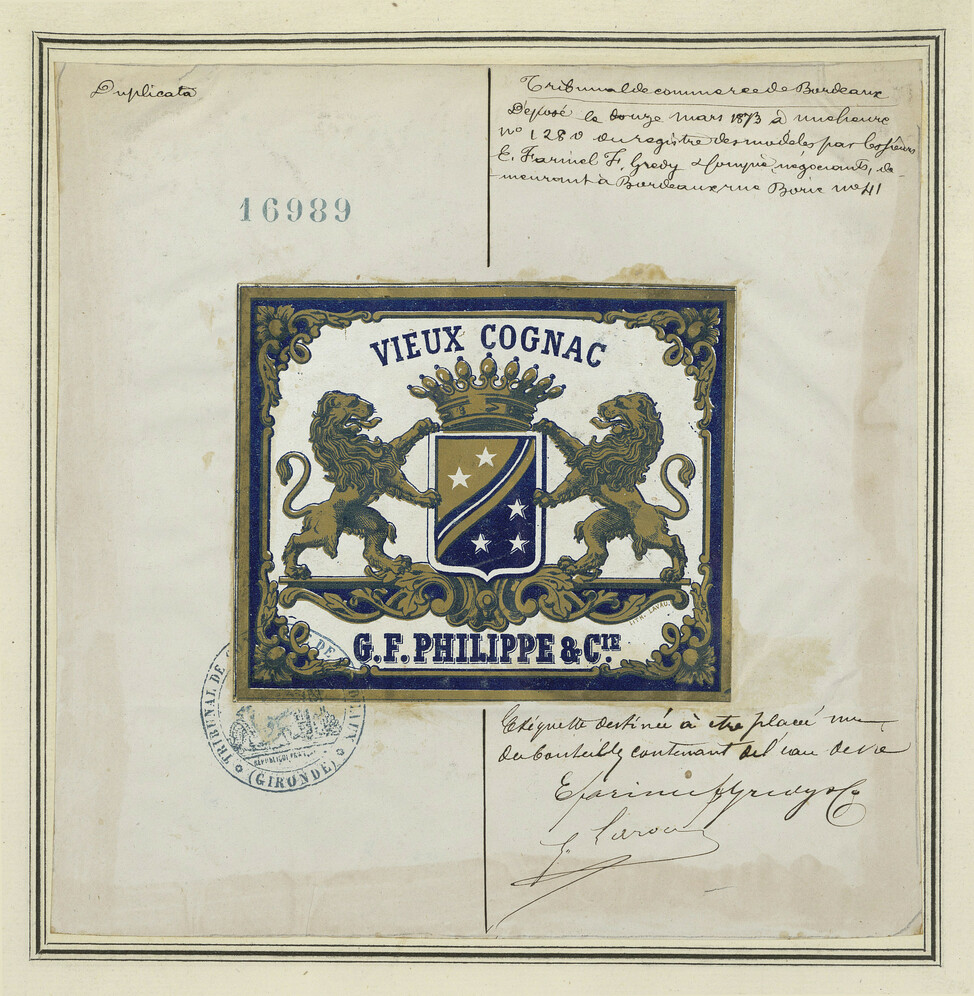 Duplicata
Tribunal de commerce de Bordeaux
Déposé le douze mars 1873 à une heure
no 1280 du registre des modèles par les sieurs
E. Farinel F. Gredy & Compie négociants, de-
meurant à Bordeaux rue Borie no 41
16989
VIEUX COGNAC
LITH. LAVAU.
G.F. PHILIPPE & CIE.
TRIBUNAL DE DE
RÉPUBLIQUE
(GIRONDE)
Etiquette destinée à être placé
des bouteilles contenant de l'eau de vie